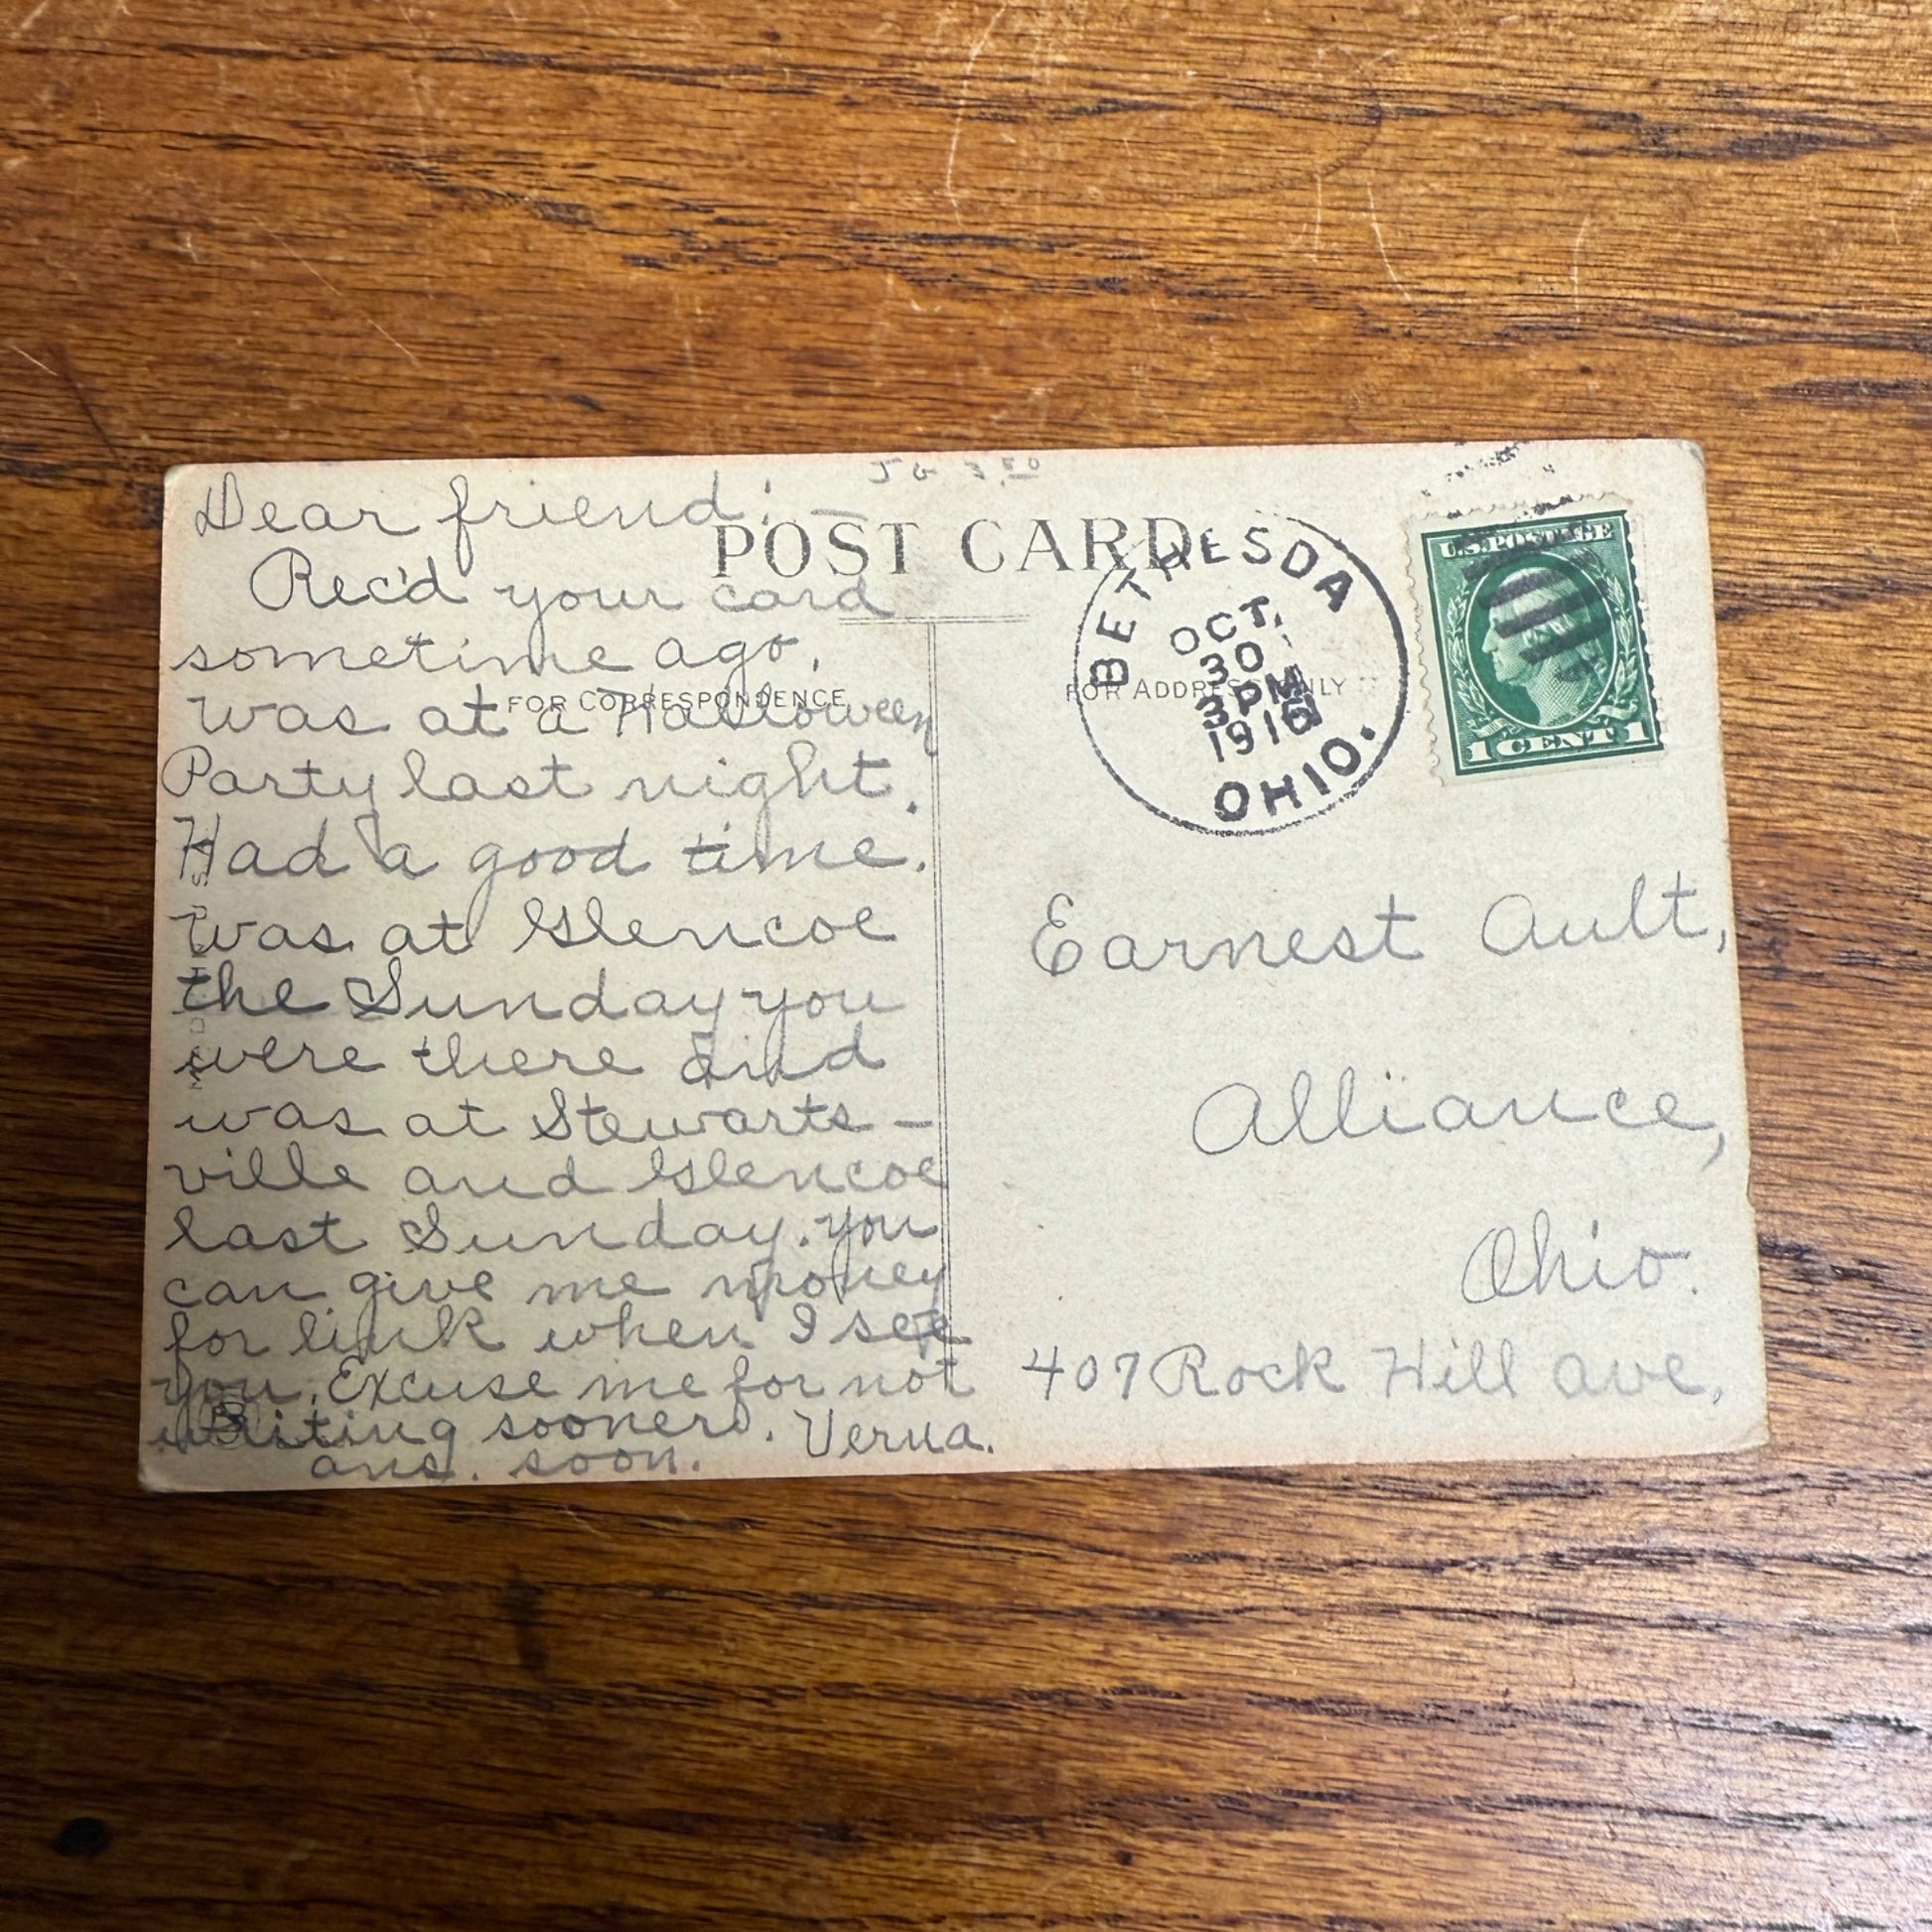 Dear friend: –
Rec'd your card
sometime ago.
was at a Halloween
Party last night.
Had a good time.
was at Glencoe
the Sunday you
were there and
was at Stewarts –
ville and Glencoe
last Sunday. you
can give me money
for link when I see
you. Excuse me for not
writing sooner. Verna.
ans. soon.
POST CARD
FOR CORRESPONDENCE
FOR ADDRESS ONLY
BETHESDA
OCT.
30
3 PM
1916
OHIO.
U.S. POSTAGE
1 CENT 1
Earnest Ault,
Alliance,
Ohio.
407 Rock Hill ave,